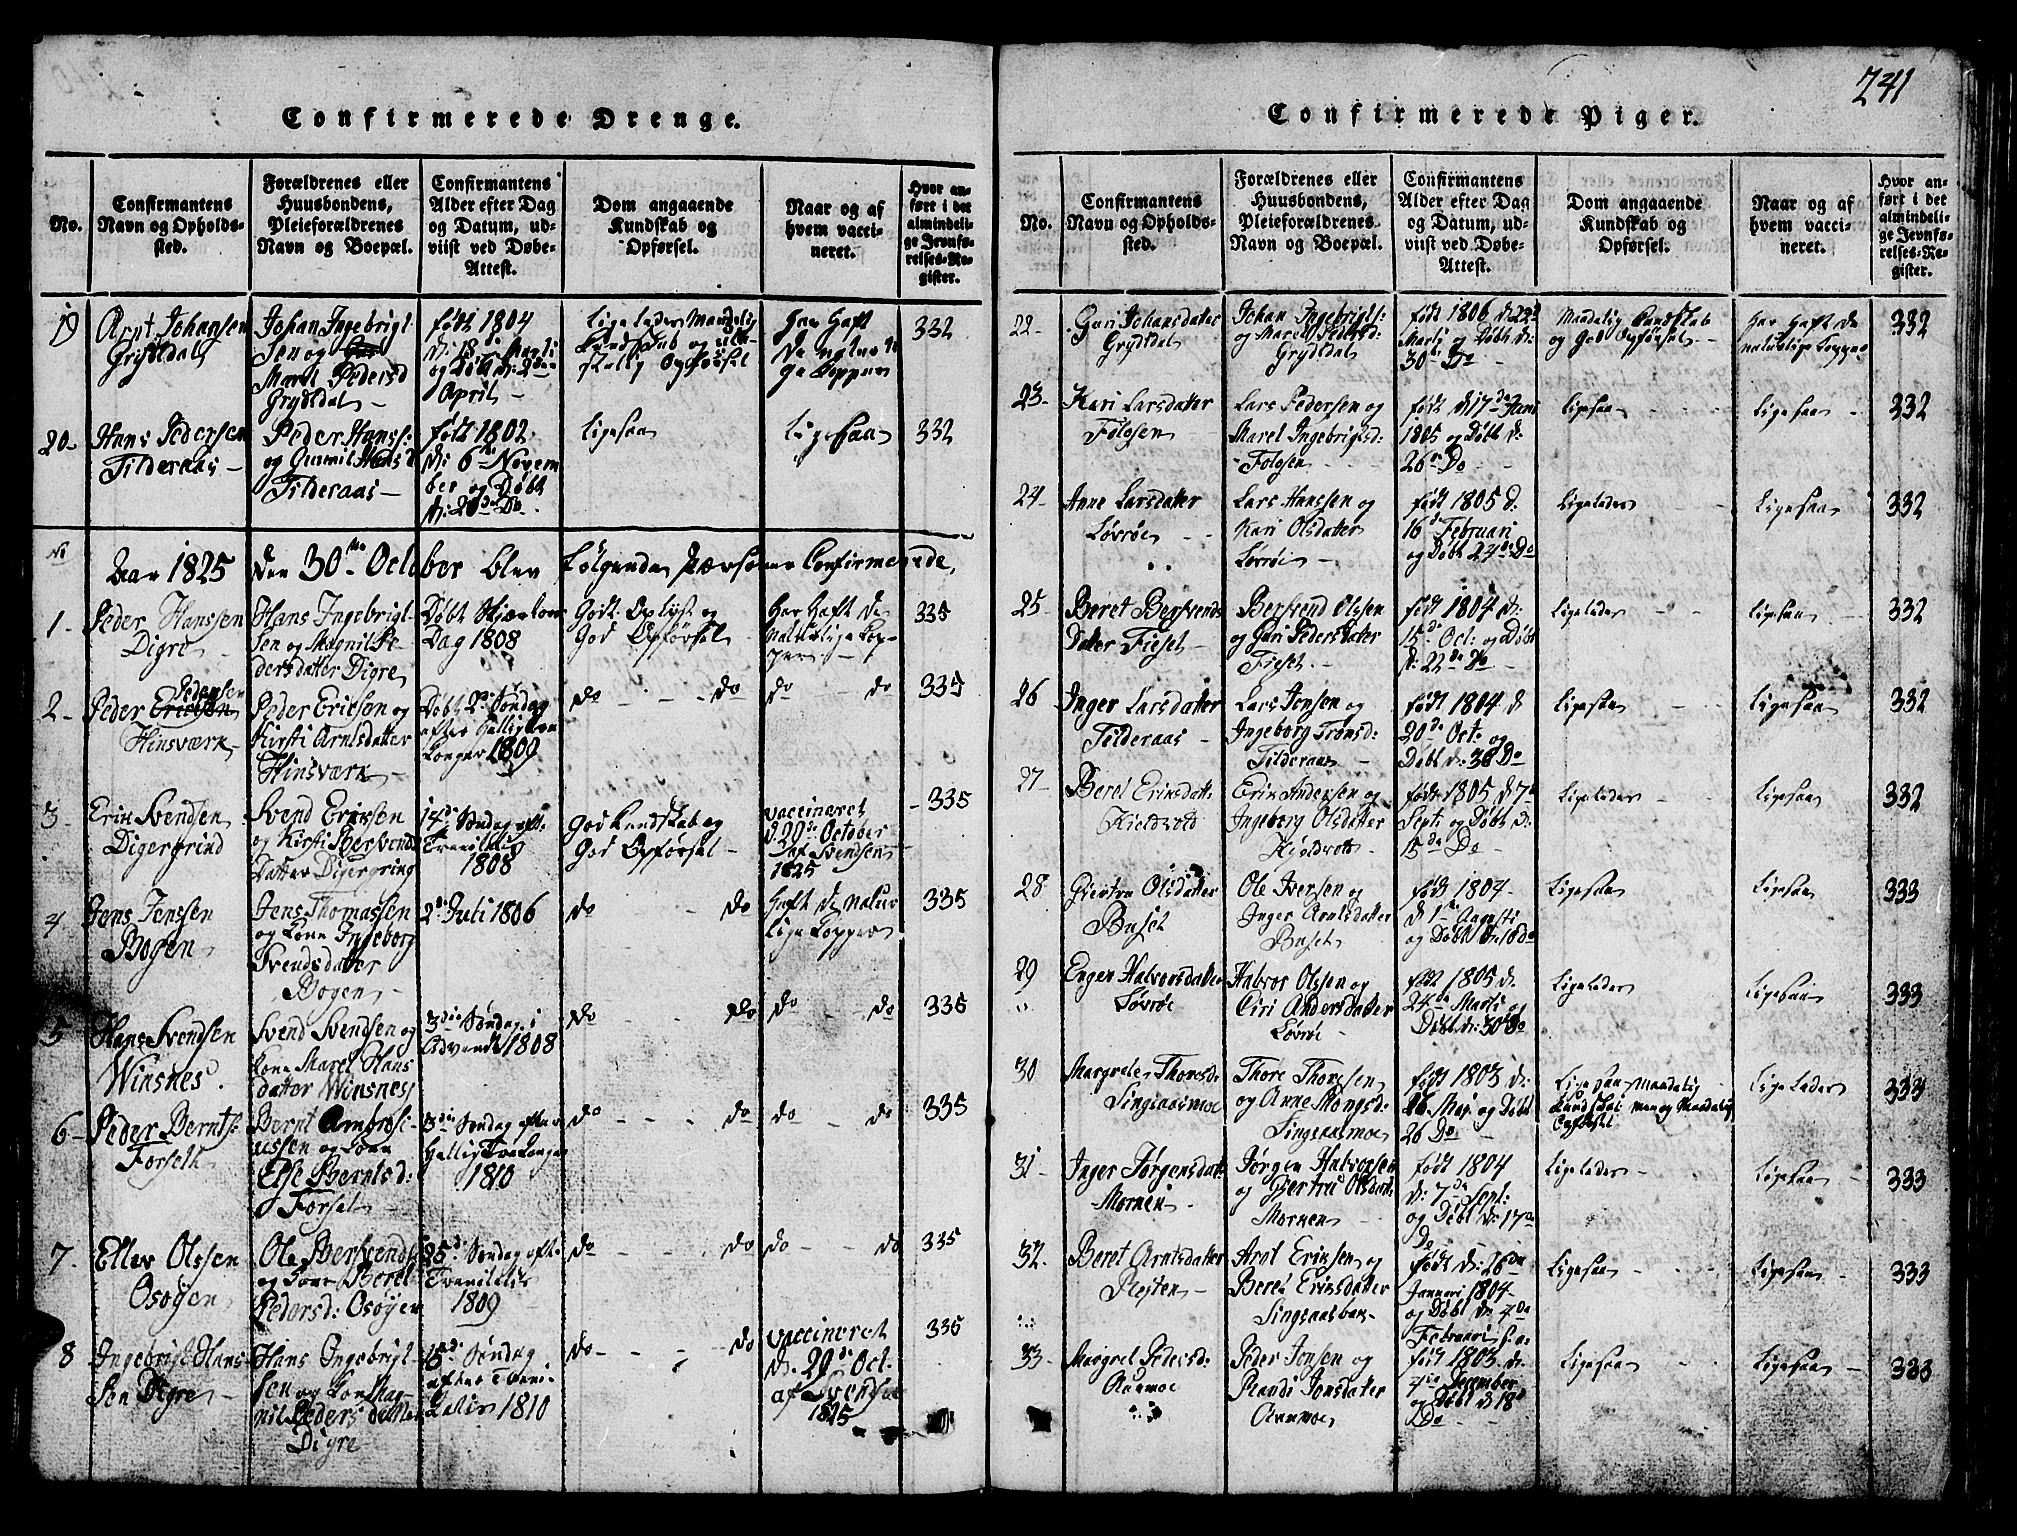 Confirmerede Drenge.
No.
Confirmantens
Navn og Opholds-
sted.
Forældrenes eller
Huusbondens,
Pleieforældrenes
Navn og Boepæl.
Confirmantens
Alder efter Dag
og Datum, ud-
viist ved Døbe-
Attest.
Dom angaaende
Kundskab og
Opførsel.
Naar og af
hvem vacci-
neret.
Hvor an-
ført i det
almindeli-
ge Jevnfø-
relses-Re-
gister.
19
Arnt Johansen
Grydtdal
Johan Ingebrigt-
sen og
Maret Pedersd
Grydtdal
født 1804
d: 18de Marti
og Døbt d: 2den
April
Ligeledes Maadelig
Kundskab og
Opførsel
har haft
de naturli
ge Kopper
332
20
Hans Pedersen
Tilderaas
Peder Hanss:
og Gunnil Hansd
Tilderaas
født 1802
d: 6te Novem
ber og Døbt
d: 20de Do
Ligesaa
Ligesaa
332
Aar 1825 den 30te October blev følgende Personer Confirmerede,
1
Peder Hanssen
Digre
Hans Ingebrigt-
sen og Magnil Pe
dersdatter Digre
Døbt Skjærtors
Dag 1808
Godt Oplyst og
God Opførsel
Har haft de
Naturlige Kop-
per
335
2
Pedersen
Peder Ericsen
Hinsværk
Peder Ericsen og
Kirsti Arntsdatter
Hinsværk
Døbt 2de Søndag
efter Hellig tre
Konger 1809
do do
do do
335
3
Erik Svendsen
Digergrind
Svend Ericksen
og Kirsti Bersvends
datter Digergrind
14de Søndag eft:
Trinitatis
1808
God Kundskab og
God Opførsel
vaccineret
d 29de October
Svendsen
1825
335
4
Jens Jenssen
Bogen
Jens Thomassen
og Kone Ingeborg
Svendsdatter
Bogen
2de Juli 1806
do do
haft de natur
lige Kopper
335
5
Hans Svendsen
Winsnes
Svend Svendsen og
Kone Maret Hans
datter Winsnes
3die Søndag i
Advendt 1808
do do
do do
335
6
Peder Bernts:
Forseth
Bernt Ambrosi-
ussen og Kone
Else Berntsd:
Forset
3die Søndag efter
Hellig Tre Konger
1810
do do
do do
335
7
Ellev Olssen
Osøyen
Ole Bersvends
og Kone Beret
Pedersd: Osøyen
25de Søndag eft:
Trinitatis
1809
do do
do do
335
8
Ingebrigt Hans-
sen Digre
Hans Ingebrigt-
sen og Kone Mag-
nil Pedersdatter
Digre
15de Søndag
efter Trini-
tatis 1810
do do
vaccineret
d: 29de Oct.
af Svendsen
1825
335
241
Confirmerede Piger.
No.
Confirmantens
Navn og Opholds-
sted.
Forældrenes eller
Huusbondens,
Pleieforældrenes
Navn og Boepæl.
Confirmantens
Alder efter Dag
og Datum, ud-
viist ved Døbe-
Attest.
Dom angaaende
Kundskab og
Opførsel.
Naar og af
hvem vacci-
neret.
Hvor an-
ført i det
almindeli-
ge Jevnfø-
relses-Re-
gister.
22
Guri Johansdatter
Grydtdal
Johan Ingebrigts:
og Maret Pedersd:
Grydtdal
født 1806 d: 23de
Marti og Døbt d:
30te Do
Maadelig Kundskab
og God Opførsel
har haft de
naturlige Kopper
332
23
Kari Larsdatter
Folosen
Lars Pedersen og
Maret Ingebrigtsd:
Folosen
født d 17de Juni
1805 og Døbt d:
26de Do
Ligesaa
Ligesaa
332
24
Anne Larsdatter
Løvrøe
Lars Hanssen og
Kari Olsdatter
Løvrøe
født 1805 d:
16de Februari
og Døbt 24de Do
Ligeledes
Ligesaa
332
25
Beret Bersvends
datter Fieset
Bersvend Olssen
og Guri Pedersdatter
Fieset
født 1804 d:
15de Oct: og Døbt
d: 22de Do
Ligeledes
Ligesaa
332
26
Inger Larsdatter
Tilderaas
Lars Jonsen og
Ingeborg Tronsd:
Tilderaas
født 1804 d:
20de Oct: og
Døbt d: 30 Do
Ligesaa
Ligesaa
332
27
Beret Ericksdatt:
Kieldvold
Erik Andersen og
Ingeborg Olsdatter
født 1805 d 7de
Sept: og Døbt d:
15de Do
Ligeledes
Ligesaa
332
28
Giertru Olsdatter
Buset
Ole Iversen og
Inger Arntsdatter
Buset
født 1804
d 1ste Augusti
og Døbt d: 18 do
Ligesaa
Ligesaa
333
29
Engen Halvorsdatter
Løvrøe
Halvor Olssen og
Siri Andersdatter
Løvrøe
født 1805 d:
24de Marti og
Døbt d: 30 Do
Ligeledes
Ligesaa
333
30
Margrete Thoresd:
Singsaasmoe
Thore Thoresen
og Anne Mongsd:
Singsaasmoe
født 1803 d:
16 Maj og Døbt
26 Do
Ligesaa Maadelig
Kundskab men og Maadelig
Ligeledes
333
31
Inger Jørgensdatt:
Mornen
Jørgen Halvorsen
og Giertru Olsdatter
Mornen
født 1804
d: 7de Sept:
og Døbt d: 17de
Do
Ligeledes
Ligesaa
333
32
Beret Arntsdatter
Resten
Arnt Ericksen og
Beret Ericksdatter
Singsaasbak
født d: 26de
Januari 1804
og Døbt d: 4de
Februari s: a:
Ligesaa
Ligesaa
333
33
Margret Pedersd:
Aunmoe
Peder Jonsen og
Randi Jonsdatter
Aunmoe
født 1803 d:
4de December
og Døbt d 18de
Do
Ligesaa
Ligesaa
333